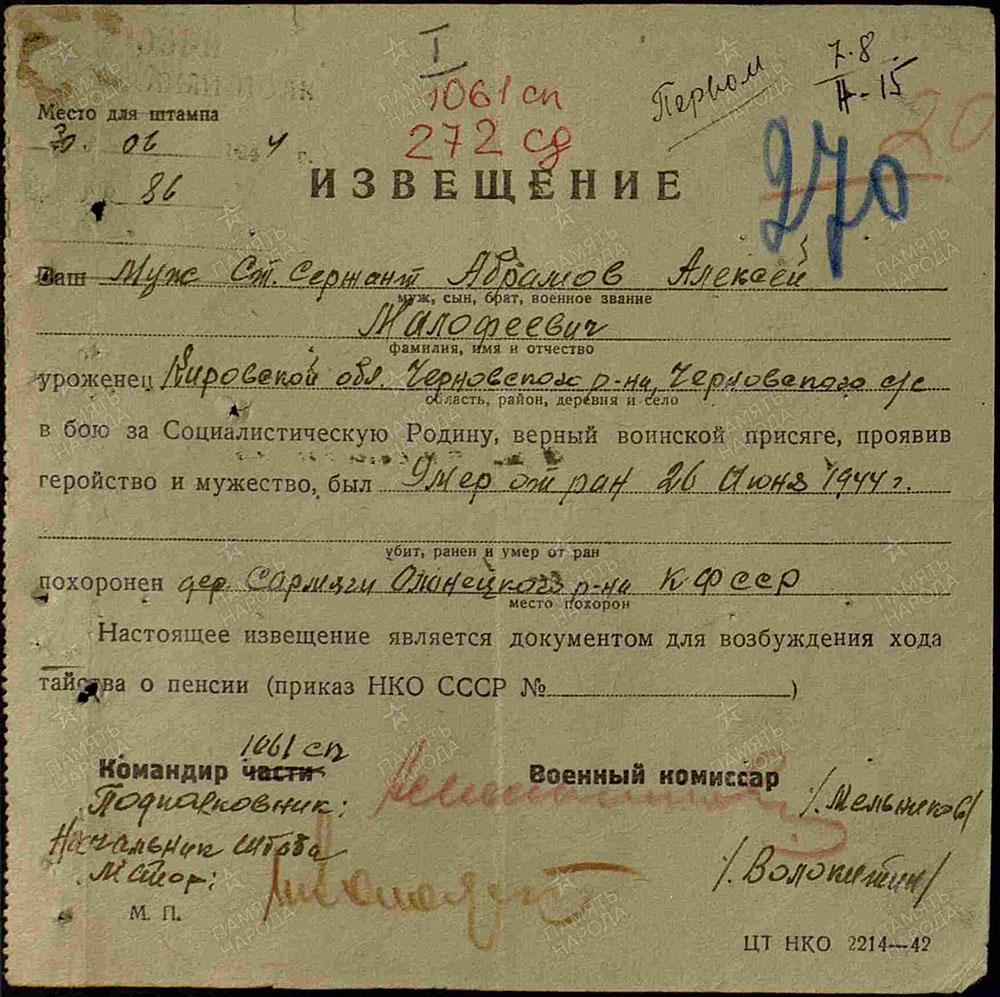 I
1061 сп
272 сд
Первом
7-8
II-15
20
270
Место для штампа
30. 06 1944 г.
86
ИЗВЕЩЕНИЕ
Ваш Муж Ст. Сержант Абрамов Алексей
муж, сын, брат, военное звание
Малофеевич
фамилия, имя и отчество
уроженец Кировской обл. Черновского р-на, Черновского с/с
область, район, деревня и село
в бою за Социалистическую Родину, верный воинской присяге, проявив
геройство и мужество, был Умер от ран 26 Июня 1944 г.
убит, ранен и умер от ран
похоронен дер. Сармяги Олонецкого р-на КФССР
место похорон
Настоящее извещение является документом для возбуждения хода
тайства о пенсии (приказ НКО СССР № )
1061 сп
Командир части Военный комиссар
Подполковник: /Мельников/
Начальник штаба
Майор: /Волокитин/
М. П.
ЦТ НКО 2214—42
ПАМЯТЬ НАРОДА